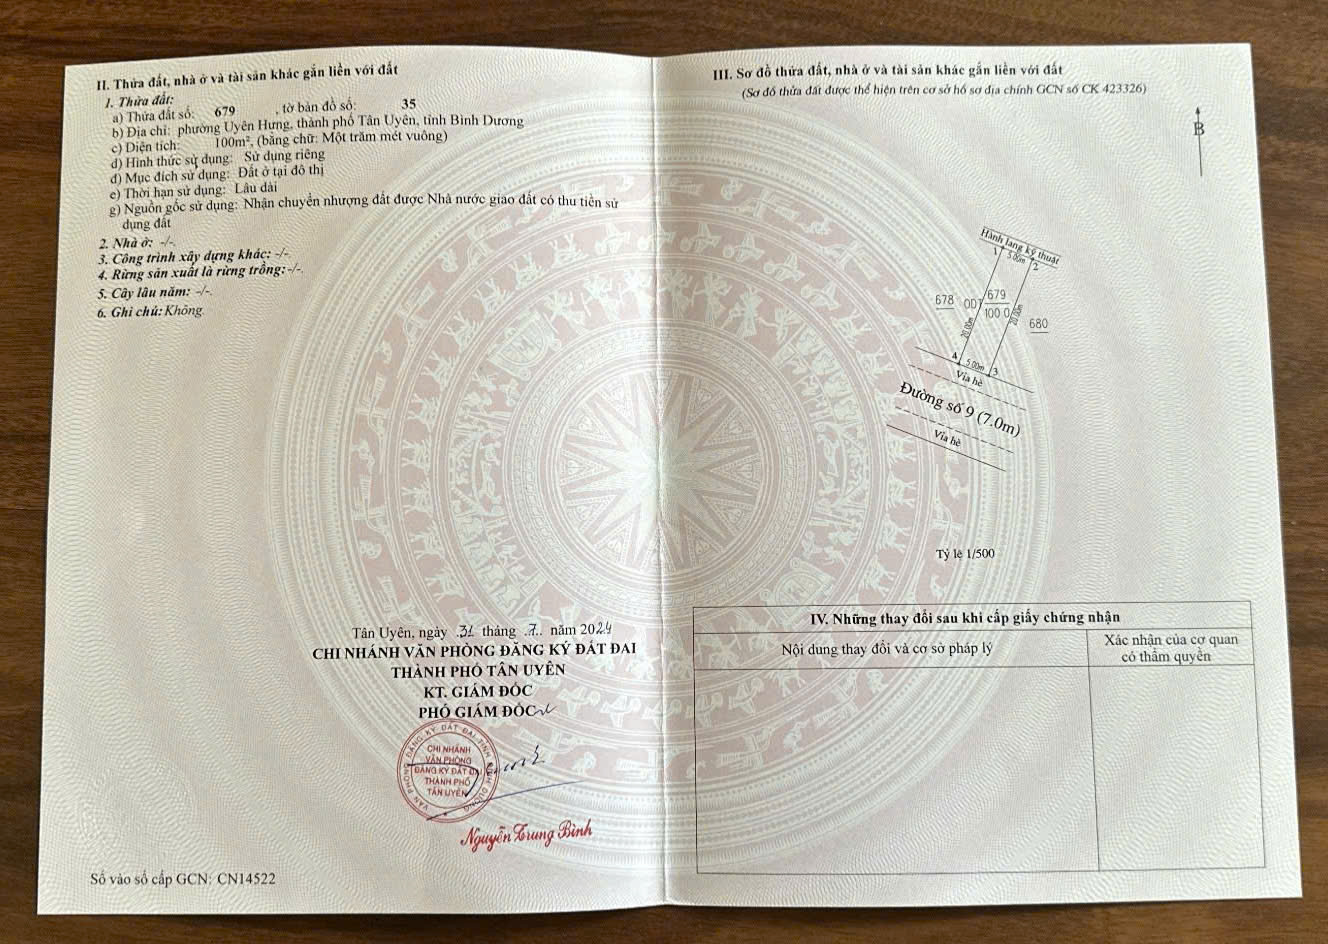 II. Thửa đất, nhà ở và tài sản khác gắn liền với đất
1. Thửa đất:
a) Thửa đất số: 679 , tờ bản đồ số: 35
b) Địa chỉ: phường Uyên Hưng, thành phố Tân Uyên, tỉnh Bình Dương
c) Diện tích: 100m², (bằng chữ: Một trăm mét vuông)
d) Hình thức sử dụng: Sử dụng riêng
đ) Mục đích sử dụng: Đất ở tại đô thị
e) Thời hạn sử dụng: Lâu dài
g) Nguồn gốc sử dụng: Nhận chuyển nhượng đất được Nhà nước giao đất có thu tiền sử
dụng đất
2. Nhà ở: -/-.
3. Công trình xây dựng khác: -/-.
4. Rừng sản xuất là rừng trồng: -/-.
5. Cây lâu năm: -/-.
6. Ghi chú: Không.
Tân Uyên, ngày 31 tháng 7 năm 2024
CHI NHÁNH VĂN PHÒNG ĐĂNG KÝ ĐẤT ĐAI
THÀNH PHỐ TÂN UYÊN
KT. GIÁM ĐỐC
PHÓ GIÁM ĐỐC
CHI NHÁNH
VĂN PHÒNG
ĐĂNG KÝ ĐẤT ĐAI
THÀNH PHỐ
TÂN UYÊN
Nguyễn Trung Bình
Số vào sổ cấp GCN: CN14522
III. Sơ đồ thửa đất, nhà ở và tài sản khác gắn liền với đất
(Sơ đồ thửa đất được thể hiện trên cơ sở hồ sơ địa chính GCN số CK 423326)
B
Hành lang kỹ thuật
1 5.00m 2
678 ODT 679
100.0
20.00m 20.00m 680
4 5.00m 3
Vỉa hè
Đường số 9 (7.0m)
Vỉa hè
Tỷ lệ 1/500
IV. Những thay đổi sau khi cấp giấy chứng nhận
Nội dung thay đổi và cơ sở pháp lý
Xác nhận của cơ quan
có thẩm quyền